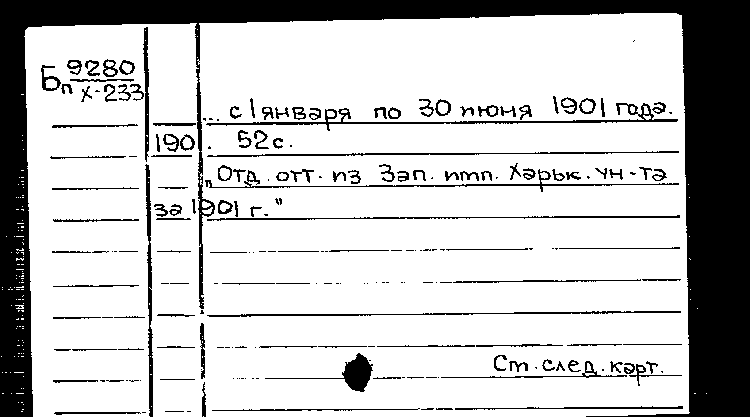 Бп 9280
X-233
... с 1 января по 30 июня 1901 года.
190 . 52 с.
"Отд. отт. из Зап. имп. Харьк. ун-та
за 1901 г."
См. след. карт.